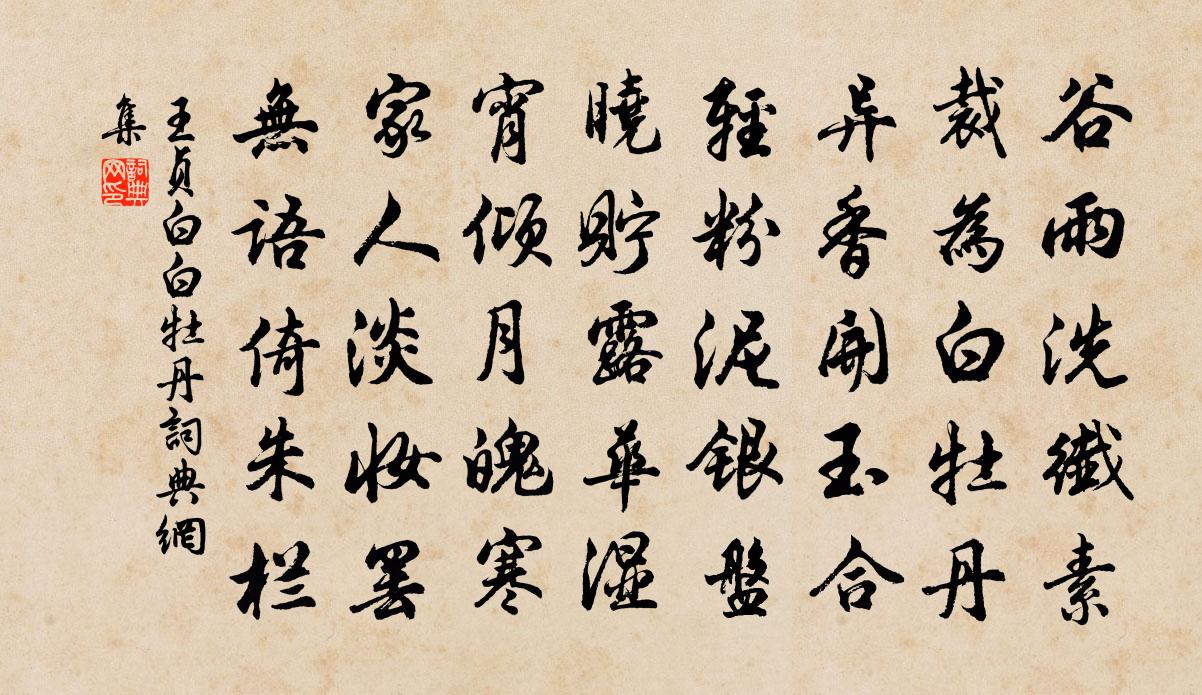 谷雨洗纖素
裁為白牡丹
异香開玉合
輕粉泥銀盤
曉貯露華濕
宵傾月魄寒
家人淡妝罷
無語倚朱栏
王貞白白牡丹詞典網
集
詞典
网印